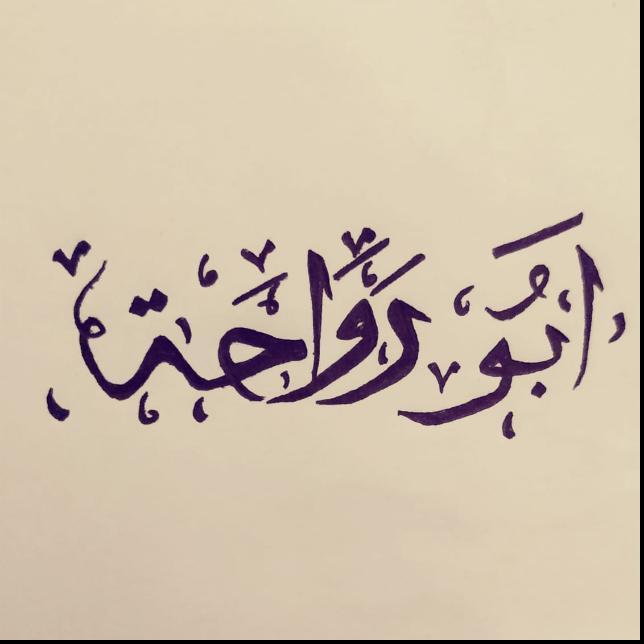 ابُو رَوَّاحَة